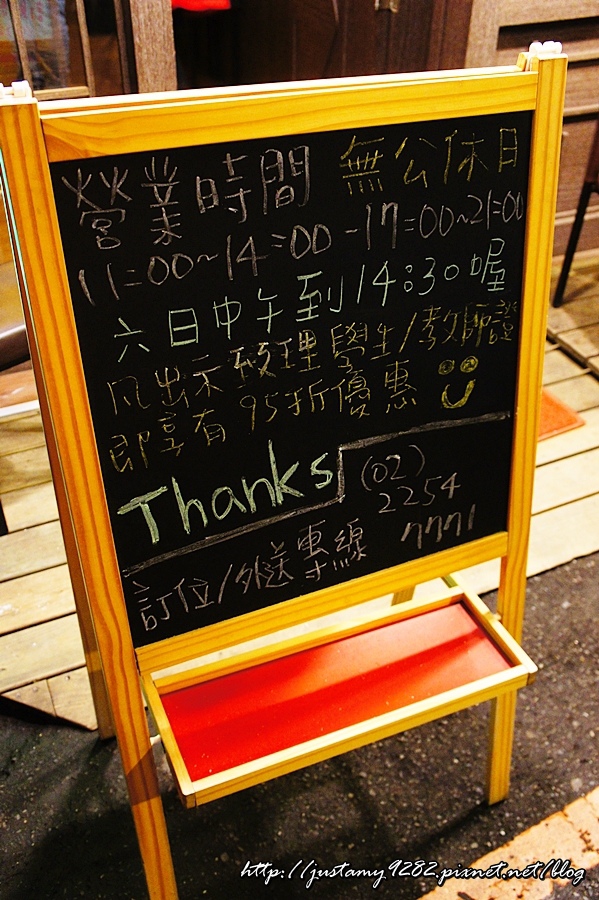 營業時間 無公休日
11:00~14:00-17:00~21:00
六日中午到14:30喔
凡出示致理學生/教師證
即享有95折優惠
Thanks
(02)
2254
7771
訂位/外送專線
http://justamy9282.pixnet.net/blog